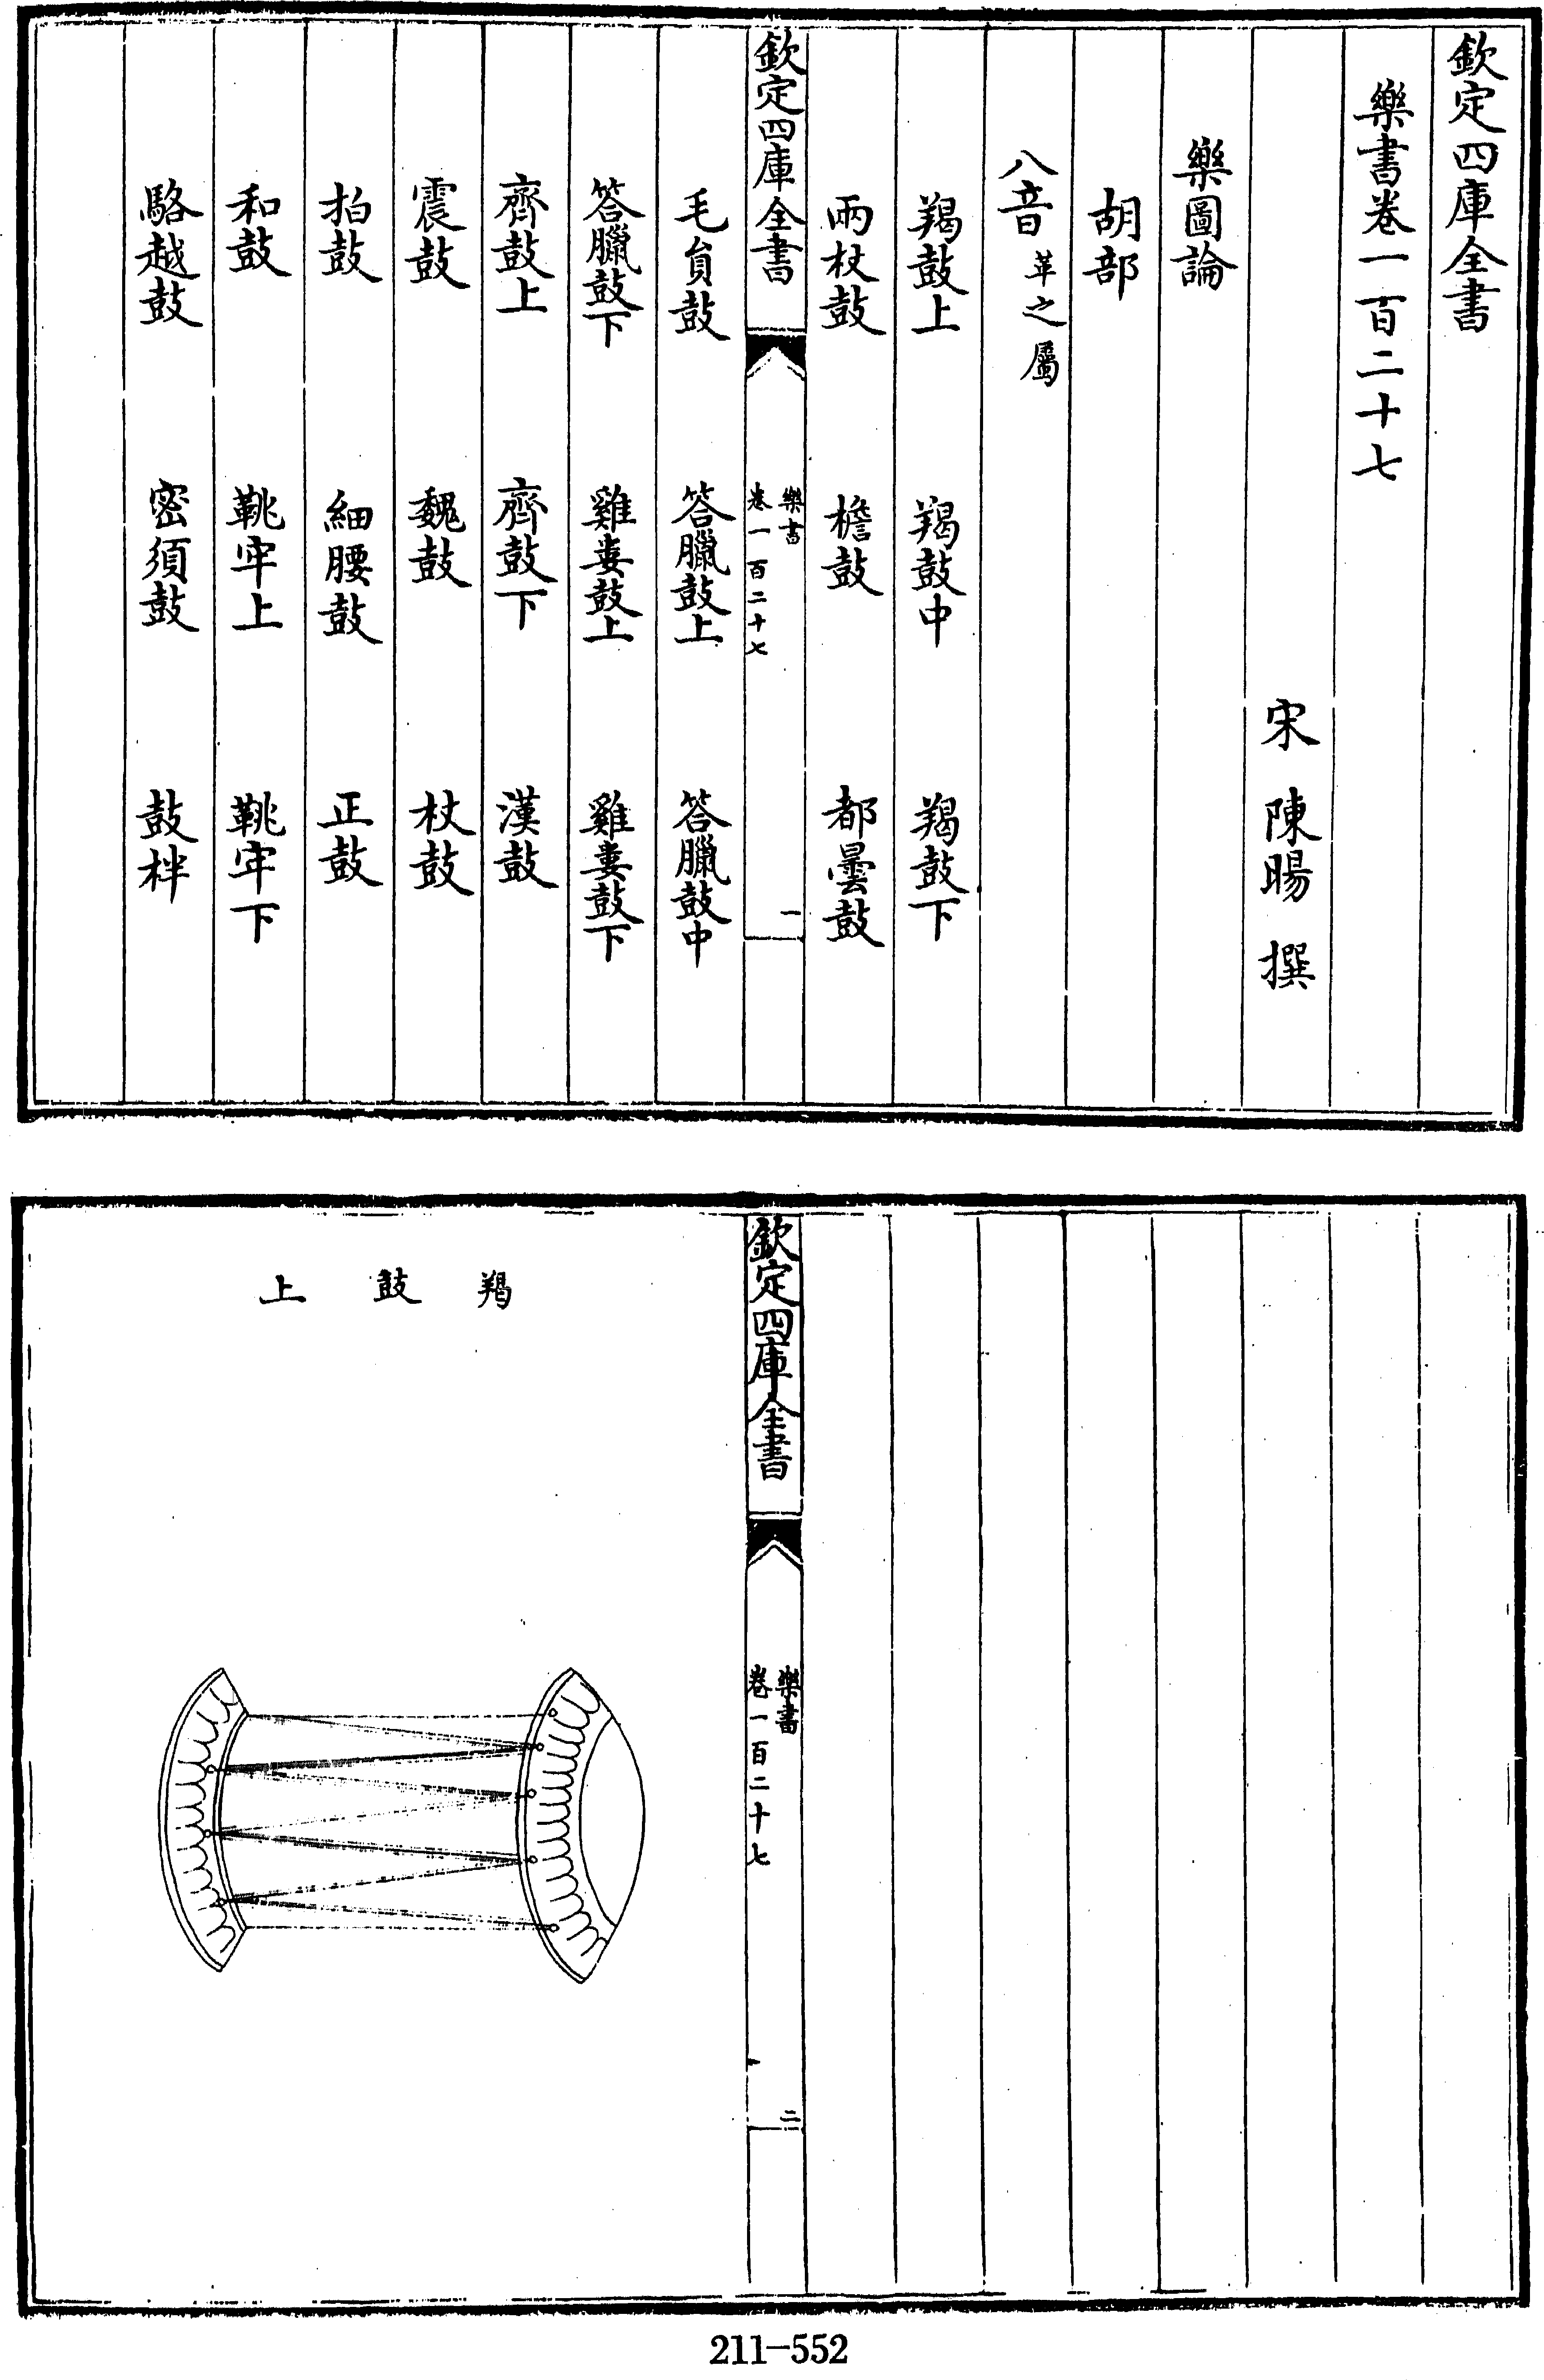 欽定四庫全書
樂書卷一百二十七
宋 陳暘 撰
樂圖論
胡部
八音 革之屬
羯鼓上 羯鼓中 羯鼓下
兩杖鼓 檐鼓 都曇鼓
欽定四庫全書 樂書 卷一百二十七 一
毛員鼓 答臘鼓上 答臘鼓中
答臘鼓下 雞婁鼓上 雞婁鼓下
齊鼓上 齊鼓下 漢鼓
震鼓 魏鼓 杖鼓
拍鼓 細腰鼓 正鼓
和鼓 鞉牢上 鞉牢下
駱越鼓 密須鼓 鼓柈
欽定四庫全書 樂書 卷一百二十七 二
羯鼓上
211-552